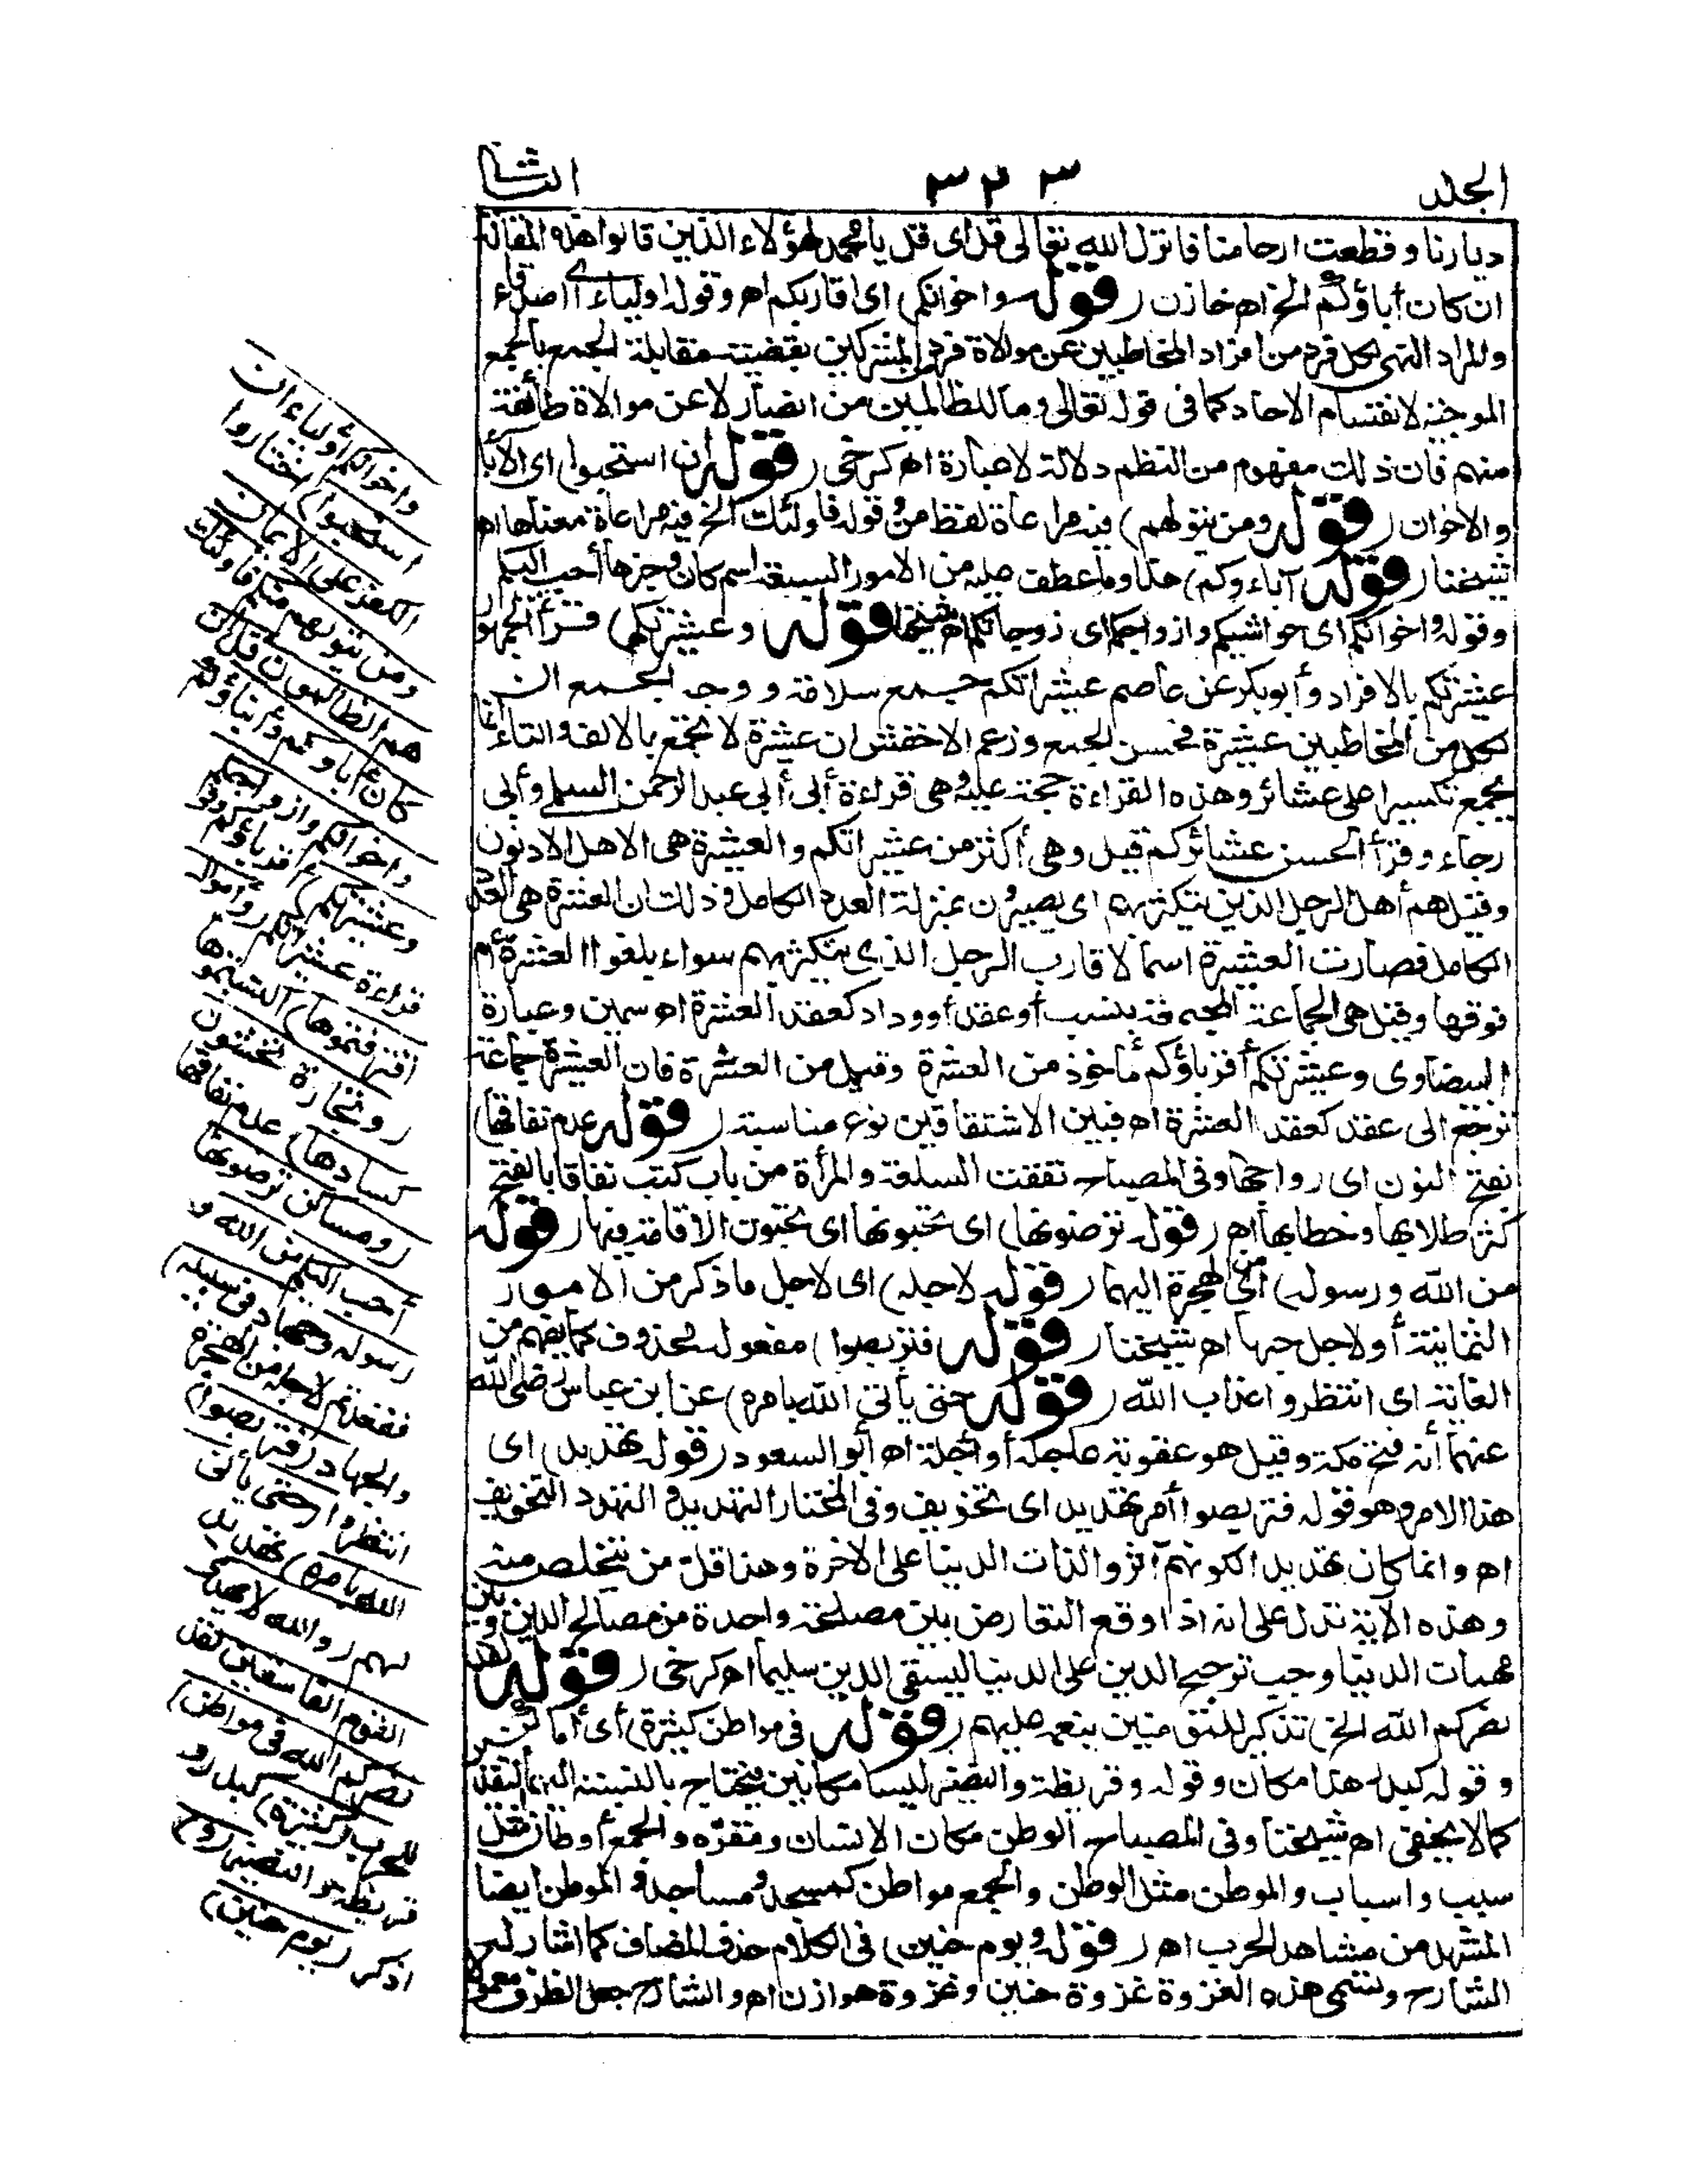 الجلد ٣٢٣ الثا
ديارنا وقطعت ارحامنا فانزل الله تعالى قل اى قل يا محمد لهؤلاء الذين قالوا هذه المقالة
ان كان أباؤكم الخ اه خازن (قوله واخوانكم) اى اقاربكم اه وقوله اولياء اى اصدقاء
والمراد النهى لكل فرد من افراد المخاطبين عن موالاة فرد من المشركين بقضية مقابلة الجمع بالجمع
الموجبة لانقسام الاحاد كما فى قوله تعالى وما للظالمين من انصار لا عن موالاة طائفة
منهم فان ذلك مفهوم من النظم دلالة لا عبارة اه كرخى (قوله ان استحبوا) اى الأباء
والاخوان (قوله ومن يتولهم) فيه مراعاة لفظ من وقوله فاولئك الخ فيه مراعاة معناها اه
شيخنا (قوله آباءوكم) هذا وما عطف عليه من الامور السبعة اسم كان وخبرها أحب اليكم
وقوله واخوانكم اى حواشيكم وازواجكم اى زوجاتكم اه شيخنا (قوله وعشيرتكم) قرأ الجمهور
عشيرتكم بالافراد وأبو بكر عن عاصم عشيراتكم جمع سلامة ووجه الجمع ان
لكل من المخاطبين عشيرة فحسن الجمع وزعم الاخفش ان عشيرة لا تجمع بالالف والتاء انما
تجمع تكسيرا على عشائر وهذه القراءة حجة عليه وهى قراءة أبى عبد الرحمن السلمى وأبى
رجاء وقرأ الحسن عشائركم قيل وهى أكثر من عشيراتكم والعشيرة هى الاهل الادنون
وقيل هم أهل الرجل الذين يتكثر بهم اى يصيرون بمنزلة العدد الكامل وذلك ان العشرة هى العدد
الكامل فصارت العشيرة اسما لاقارب الرجل الذى يتكثر بهم سواء بلغوا العشرة أم
فوقها وقيل هى الجماعة المجتمعة بنسب أو عقد أو وداد كعقد العشرة اه سمين وعبارة
البيضاوى وعشيرتكم أقرباؤكم مأخوذ من العشرة وقيل من العشرة فان العشيرة جماعة
ترجع الى عقد كعقد العشرة اه فبين الاشتقاقين نوع مناسبة (قوله عدم نفاقها)
بفتح النون اى رواجها وفى المصباح نفقت السلعة والمرأة من باب كتب نفاقا بالفتح
كثر طلابها وخطابها اه (قوله ترضونها) اى تحبونها اى تحبون الاقامة فيها (قوله
من الله ورسوله) اى من الهجرة اليهما (قوله لاجله) اى لاجل ما ذكر من الامور
الثمانية أو لاجل حبها اه شيخنا (قوله فتربصوا) مفعوله محذوف كما يفهم من
الغاية اى انتظروا عذاب الله (قوله حتى يأتى الله بامره) عن ابن عباس رضى الله
عنهما أنه فتح مكة وقيل هو عقوبة عاجلة أو آجلة اه أبو السعود (قوله تهديد) اى
هذا الامر وهو قوله فتربصوا أمر تهديد اى تخويف وفى المختار التهديد والتهدد التخويف
اه وانما كان تهديدا لكونهم آثروا لذات الدنيا على الاخرة وهذا قل من تخلص منه
وهذه الآية تدل على انه اذا وقع التعارض بين مصلحة واحدة من مصالح الدين وبين
مهمات الدنيا وجب ترجيح الدين على الدنيا ليبقى الدين سليما اه كرخى (قوله لقد
نصركم الله الخ) تذكير للمؤمنين بنعمه عليهم (قوله فى مواطن كثيرة) أى أماكن
وقوله كبدر هذا مكان وقوله وقريظة والنضير ليسا مكانين فيحتاج بالنسبة اليهما لتقدير
كما لا يخفى اه شيخنا وفى المصباح الوطن مكان الانسان ومقره والجمع أوطان مثل
سبب واسباب والموطن مثل الوطن والجمع مواطن كمسجد ومساجد والموطن ايضا
المشهد من مشاهد الحرب اه (قوله ويوم حنين) فى الكلام حذف المضاف كما اشار له
الشارح وتسمى هذه الغزوة غزوة حنين وغزوة هوازن اه والشارح جعل الظرف معمولا
واخوانكم أولياء ان
استحبوا) اختاروا
الكفر على الايمان
ومن يتولهم منكم فاولئك
هم الظالمون قل ان
كان أباؤكم وأبناؤكم
واخوانكم وازواجكم
وعشيرتكم) أقرباؤكم وفى
قراءة عشيراتكم (وأموال
اقترفتموها) اكتسبتموها
(وتجارة تخشون
كسادها) عدم نفاقها
(ومساكن ترضونها
أحب اليكم من الله و
رسوله وجهاد فى سبيله)
فقعدتم لاجله من الهجرة
والجهاد (فتربصوا)
انتظروا (حتى يأتى
الله بامره) تهديد
لهم (والله لا يهدى
القوم الفاسقين لقد
نصركم الله فى مواطن)
للحرب (كثيرة) كبدر و
قريظة والنضير (و)
اذكر (يوم حنين)